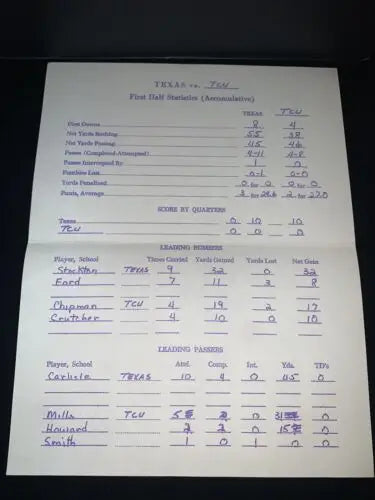 TEXAS vs. TCU
First Half Statistics (Accumulative)
TEXAS TCU
First Downs 8 4
Net Yards Rushing 55 38
Net Yards Passing 45 46
Passes (Completed-Attempted) 4-11 4-8
Passes Intercepted By 1 0
Fumbles Lost 0-1 0-0
Yards Penalized 0 for 0 0 for 0
Punts, Average 3 for 28.6 2 for 27.0
SCORE BY QUARTERS
Texas 0 10 — 10
TCU 0 0 — 0
LEADING RUSHERS
Player, School Times Carried Yards Gained Yards Lost Net Gain
Stockton TEXAS 9 32 0 32
Ford 7 11 3 8
Chipman TCU 4 19 2 17
Crutcher 4 10 0 10
LEADING PASSERS
Player, School Attd. Comp. Int. Yds. TD's
Carlisle TEXAS 10 4 0 45 0
Mills TCU 5 2 0 31 0
Howard 2 2 0 15 0
Smith 1 0 1 0 0